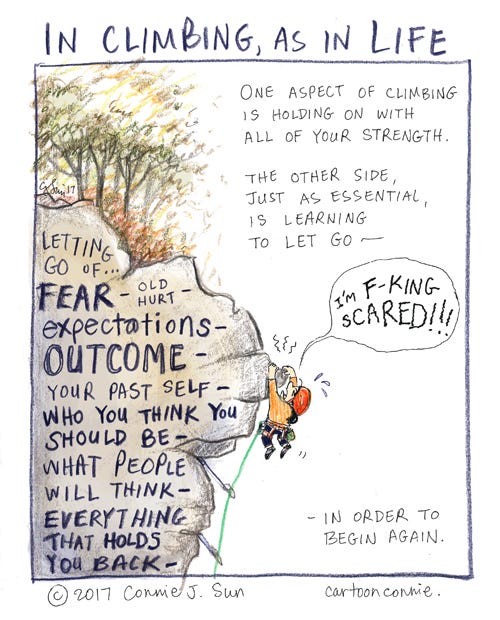 IN CLIMBING, AS IN LIFE
ONE ASPECT OF CLIMBING
IS HOLDING ON WITH
ALL OF YOUR STRENGTH.
THE OTHER SIDE,
JUST AS ESSENTIAL,
IS LEARNING
TO LET GO —
LETTING
GO OF...
FEAR - OLD
HURT -
expectations-
OUTCOME -
YOUR PAST SELF -
WHO YOU THINK YOU
SHOULD BE -
WHAT PEOPLE
WILL THINK -
EVERYTHING
THAT HOLDS
YOU BACK -
I'M F-KING
SCARED!!!
- IN ORDER TO
BEGIN AGAIN.
© 2017 Connie J. Sun
cartoonconnie.